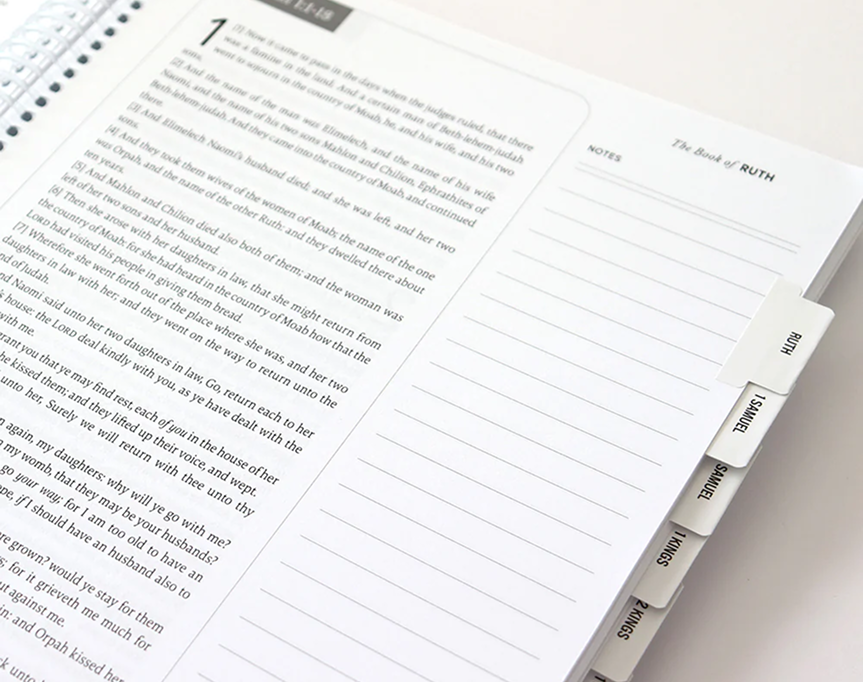 1:1-13
1 [1] Now it came to pass in the days when the judges ruled, that there
was a famine in the land. And a certain man of Beth-lehem-judah
went to sojourn in the country of Moab, he, and his wife, and his two
sons.
[2] And the name of the man was Elimelech, and the name of his wife
Naomi, and the name of his two sons Mahlon and Chilion, Ephrathites of
Beth-lehem-judah. And they came into the country of Moab, and continued
there.
[3] And Elimelech Naomi's husband died; and she was left, and her two
sons.
[4] And they took them wives of the women of Moab; the name of the one
was Orpah, and the name of the other Ruth: and they dwelled there about
ten years.
[5] And Mahlon and Chilion died also both of them; and the woman was
left of her two sons and her husband.
[6] Then she arose with her daughters in law, that she might return from
the country of Moab: for she had heard in the country of Moab how that the
LORD had visited his people in giving them bread.
[7] Wherefore she went forth out of the place where she was, and her two
daughters in law with her; and they went on the way to return unto the
nd of Judah.
nd Naomi said unto her two daughters in law, Go, return each to her
's house: the LORD deal kindly with you, as ye have dealt with the
with me.
grant you that ye may find rest, each of you in the house of her
he kissed them; and they lifted up their voice, and wept.
unto her, Surely we will return with thee unto thy
n again, my daughters: why will ye go with me?
n my womb, that they may be your husbands?
go your way; for I am too old to have an
pe, if I should have an husband also to
re grown? would ye stay for them
s; for it grieveth me much for
ut against me.
in: and Orpah kissed her
ck unto
The Book of RUTH
NOTES
RUTH
1 SAMUEL
SAMUEL
1 KINGS
2 KINGS